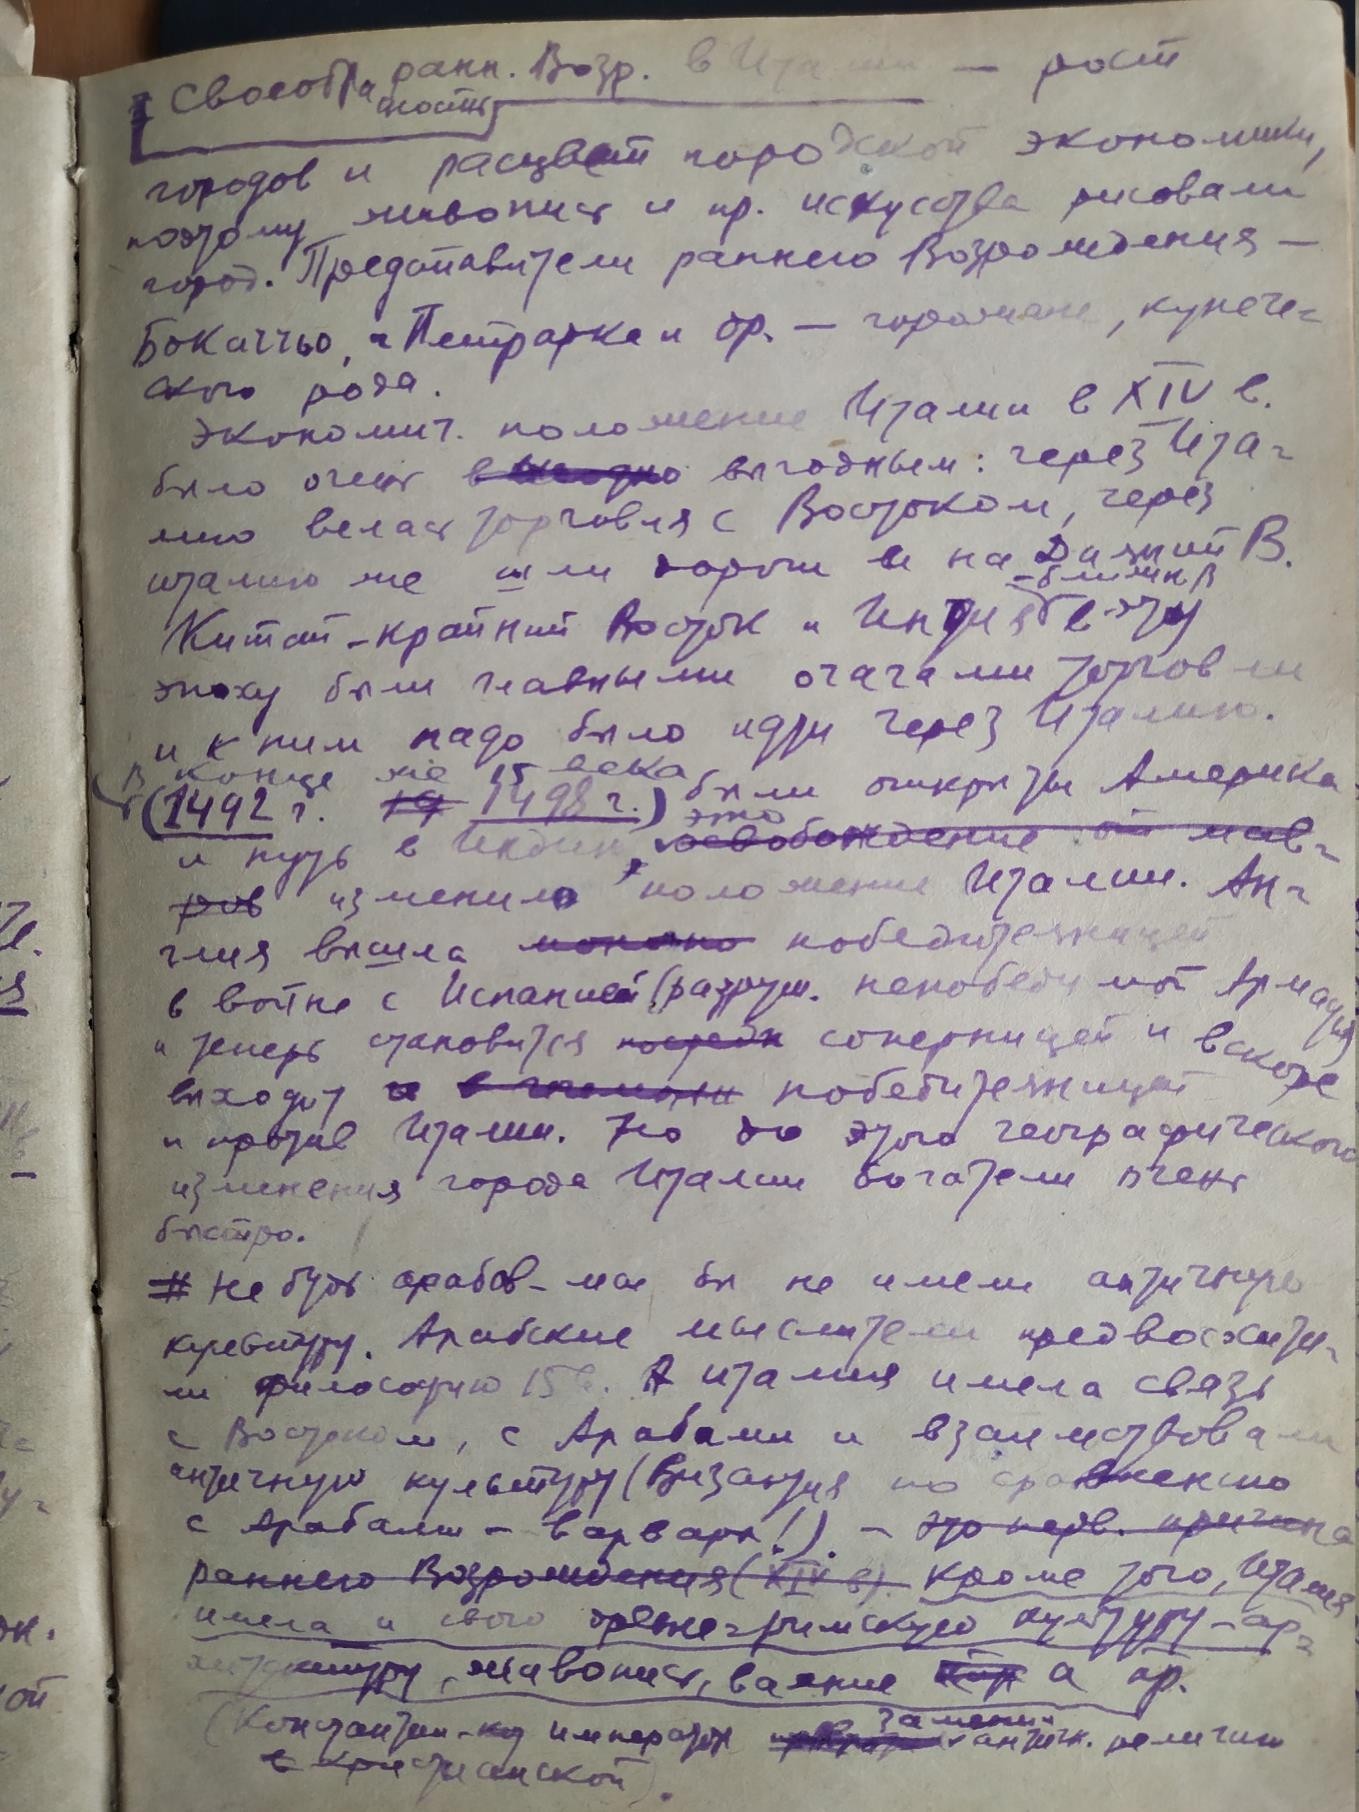 Своеобразность ранн. Возр. в Италии — рост
городов и расцвет городской экономики,
поэтому живопись и пр. искусства рисовали
город. Представители раннего Возрождения —
Бокаччьо, Петрарка и др. — горожане, купече-
ского рода.
Экономич. положение Италии в XIV в.
было очень выгодным: через Ита-
лию велась торговля с Востоком, через
италию же шли дороги и на Дальний В.
- ближн В
Китай - крайний Восток и Индия в эту
эпоху были главными очагами торговли
и к ним надо было идти через Италию.
В конце же 15 века
(1492 г. 1498 г.) были открыты Америка
и путь в Индию, это освобождение от мав-
ров изменило положение Италии. Ан-
глия вышла победительницей
в войне с Испанией (разруш. непобедимой Армады)
и теперь становится соперницей и вскоре
выходит победительницей
и против Италии. Но до этого географического
изменения города Италии богатели очень
быстро.
# Не будь арабов - мы бы не имели античную
культуру. Арабские мыслители предвосхити-
ли философию 15 в. А италия имела связь
с Востоком, с Арабами и взаимствовали
античную культуру (Византия по сравнению
с Арабами - варвары!). - это перв. причина
раннего Возрождения (XIV в). Кроме того, Италия
имела и свою древне-римскую культуру - ар-
хитектуру, живопись, ваяние и пр.
(Константин - император заменил антич. религию
христианской).